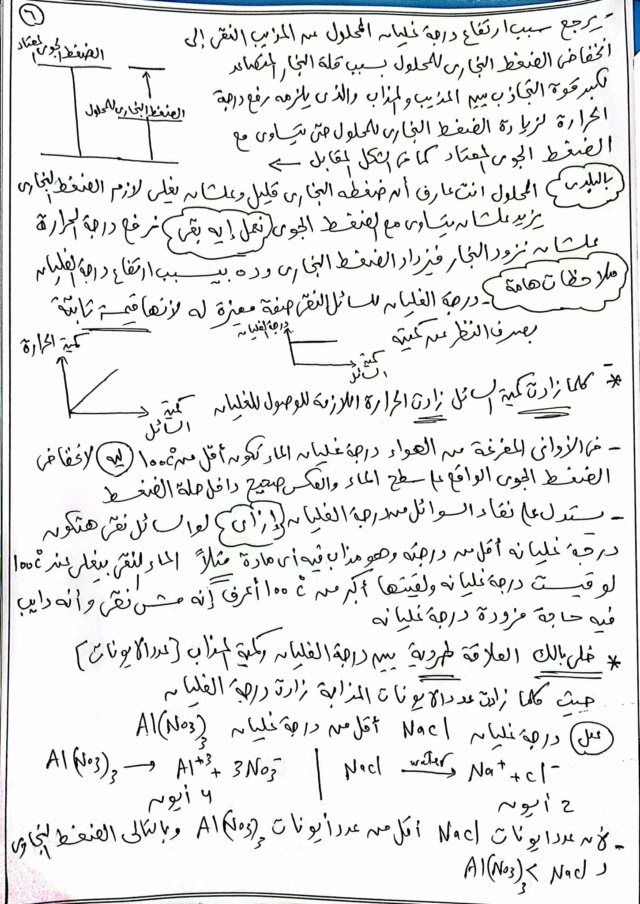 ٦
- يرجع سبب ارتفاع درجة غليان المحلول عن المذيب النقى إلى
انخفاض الضغط البخارى للمحلول بسبب قلة البخار المتصاعد
لكبر قوة التجاذب بين المذيب والمذاب والذى يلزمه رفع درجة
الحرارة لزيادة الضغط البخارى للمحلول حتى يتساوى مع
الضغط الجوى المعتاد كما فى الشكل المقابل ←
الضغط الجوى المعتاد
الضغط البخارى للمحلول
بالبلدى المحلول انت عارف أن ضغطه البخارى قليل وعلشان يغلى لازم الضغط البخارى
يزيد علشان يتساوى مع الضغط الجوى نعمل إيه بقى نرفع درجة الحرارة
علشان نزود البخار فيزداد الضغط البخارى وده بيسبب ارتفاع درجة الغليان
ملاحظات هامة - درجة الغليان للسائل النقى صفة مميزة له لأنها قيمة ثابتة
بصرف النظر عن كميته
درجة الغليان
كمية السائل
كمية الحرارة
كمية السائل
* كلما زادت كمية السائل زادت الحرارة اللازمة للوصول للغليان
- فى الأوانى المفرغة من الهواء درجة غليان الماء تكون أقل من 100°C ليه لانخفاض
الضغط الجوى الواقع على سطح الماء والعكس صحيح داخل حلة الضغط
- يستدل على نقاء السوائل من درجة الغليان إزاى لو السائل نقى هتكون
درجة غليانه أقل من درجته وهو مذاب فيه أى مادة مثلاً الماء النقى بيغلى عند 100°C
لو قيست درجة غليانه ولقيتها أكبر من 100°C أعرف إنه مش نقى وأنه دايب
فيه حاجة مزودة درجة غليانه
* خلى بالك العلاقة طردية بين درجة الغليان وكمية المذاب [عدد الايونات]
حيث كلما زادت عدد الايونات المذابة زادت درجة الغليان
علل درجة غليان NaCl أقل من درجة غليان Al(NO3)3
Al(NO3)3 → Al+3 + 3NO3- | NaCl water→ Na+ + Cl-
4 أيون 2 أيون
- لأن عدد ايونات NaCl أقل من عدد أيونات Al(NO3)3 وبالتالى الضغط البخارى
لـ Al(NO3)3 < NaCl